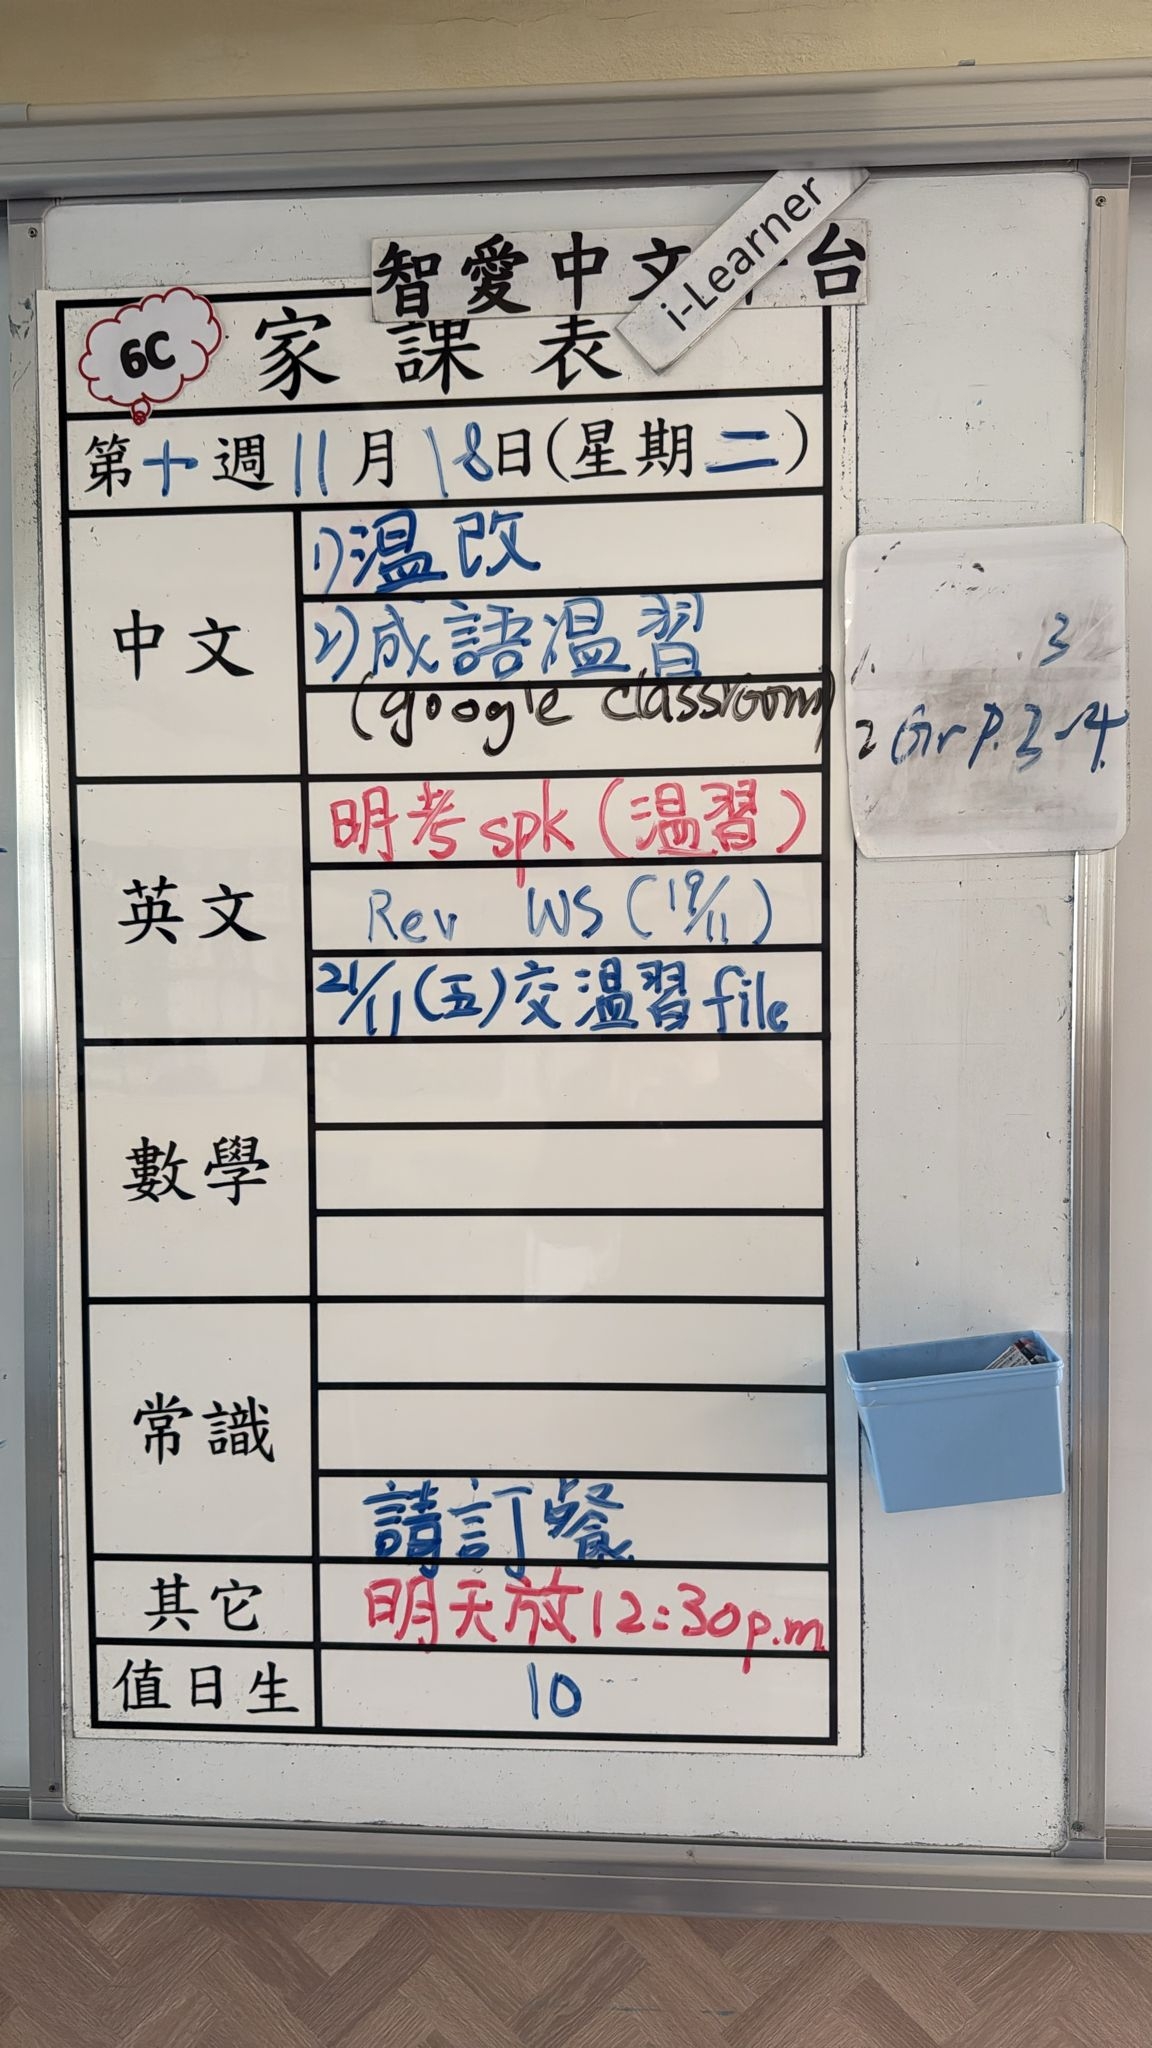 智愛中文 台
i-Learner
6C
家課表
第十週11月18日(星期二)
中文
1)温改
2)成語温習
(google classroom)
3
2 Gr P.3-4
英文
明考spk(温習)
Rev WS(19/11)
21/11(五)交温習file
數學
常識
請訂餐
其它
明天放12:30p.m
值日生
10